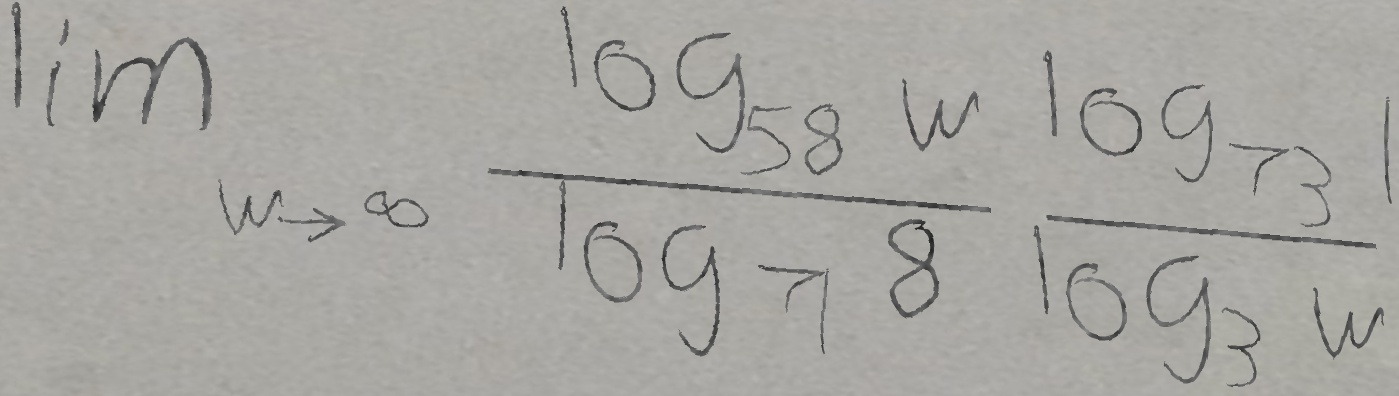 \lim_{w \to \infty} \frac{\log_{58} w}{\log_{71} 8} \frac{\log_{73} 1}{\log_{3} w}